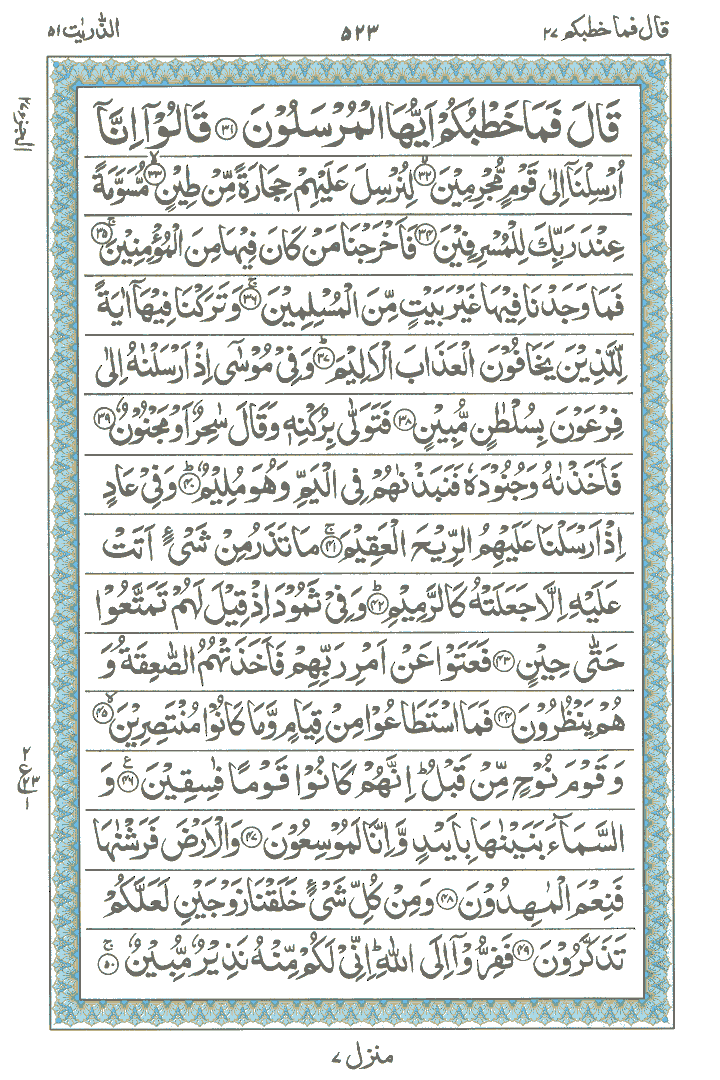 قال فما خطبكم ٢٧
٥٢٣
الذّٰريٰت ٥١
الجزء ٢٧
قَالَ فَمَا خَطْبُكُمْ اَيُّهَا الْمُرْسَلُوْنَ ﴿٣١﴾ قَالُوْۤا اِنَّاۤ
اُرْسِلْنَاۤ اِلٰى قَوْمٍ مُّجْرِمِيْنَ ﴿٣٢﴾ لِنُرْسِلَ عَلَيْهِمْ حِجَارَةً مِّنْ طِيْنٍ ﴿٣٣﴾ مُّسَوَّمَةً
عِنْدَ رَبِّكَ لِلْمُسْرِفِيْنَ ﴿٣٤﴾ فَاَخْرَجْنَا مَنْ كَانَ فِيْهَا مِنَ الْمُؤْمِنِيْنَ ﴿٣٥﴾
فَمَا وَجَدْنَا فِيْهَا غَيْرَ بَيْتٍ مِّنَ الْمُسْلِمِيْنَ ﴿٣٦﴾ وَتَرَكْنَا فِيْهَاۤ اٰيَةً
لِّلَّذِيْنَ يَخَافُوْنَ الْعَذَابَ الْاَلِيْمَ ﴿٣٧﴾ وَفِيْ مُوْسٰۤى اِذْ اَرْسَلْنٰهُ اِلٰى
فِرْعَوْنَ بِسُلْطٰنٍ مُّبِيْنٍ ﴿٣٨﴾ فَتَوَلّٰى بِرُكْنِهٖ وَقَالَ سٰحِرٌ اَوْ مَجْنُوْنٌ ﴿٣٩﴾
فَاَخَذْنٰهُ وَجُنُوْدَهٗ فَنَبَذْنٰهُمْ فِى الْيَمِّ وَهُوَ مُلِيْمٌ ﴿٤٠﴾ وَفِيْ عَادٍ
اِذْ اَرْسَلْنَا عَلَيْهِمُ الرِّيْحَ الْعَقِيْمَ ﴿٤١﴾ مَا تَذَرُ مِنْ شَيْءٍ اَتَتْ
عَلَيْهِ اِلَّا جَعَلَتْهُ كَالرَّمِيْمِ ﴿٤٢﴾ وَفِيْ ثَمُوْدَ اِذْ قِيْلَ لَهُمْ تَمَتَّعُوْا
حَتّٰى حِيْنٍ ﴿٤٣﴾ فَعَتَوْا عَنْ اَمْرِ رَبِّهِمْ فَاَخَذَتْهُمُ الصّٰعِقَةُ وَ
هُمْ يَنْظُرُوْنَ ﴿٤٤﴾ فَمَا اسْتَطَاعُوْا مِنْ قِيَامٍ وَّمَا كَانُوْا مُنْتَصِرِيْنَ ﴿٤٥﴾
وَقَوْمَ نُوْحٍ مِّنْ قَبْلُ ؕ اِنَّهُمْ كَانُوْا قَوْمًا فٰسِقِيْنَ ﴿٤٦﴾ وَ
السَّمَآءَ بَنَيْنٰهَا بِاَيْىدٍ وَّاِنَّا لَمُوْسِعُوْنَ ﴿٤٧﴾ وَالْاَرْضَ فَرَشْنٰهَا
فَنِعْمَ الْمٰهِدُوْنَ ﴿٤٨﴾ وَمِنْ كُلِّ شَيْءٍ خَلَقْنَا زَوْجَيْنِ لَعَلَّكُمْ
تَذَكَّرُوْنَ ﴿٤٩﴾ فَفِرُّوْۤا اِلَى اللّٰهِ ؕ اِنِّيْ لَكُمْ مِّنْهُ نَذِيْرٌ مُّبِيْنٌ ﴿٥٠﴾
٢
ع
٢٣
١
منزل ٧